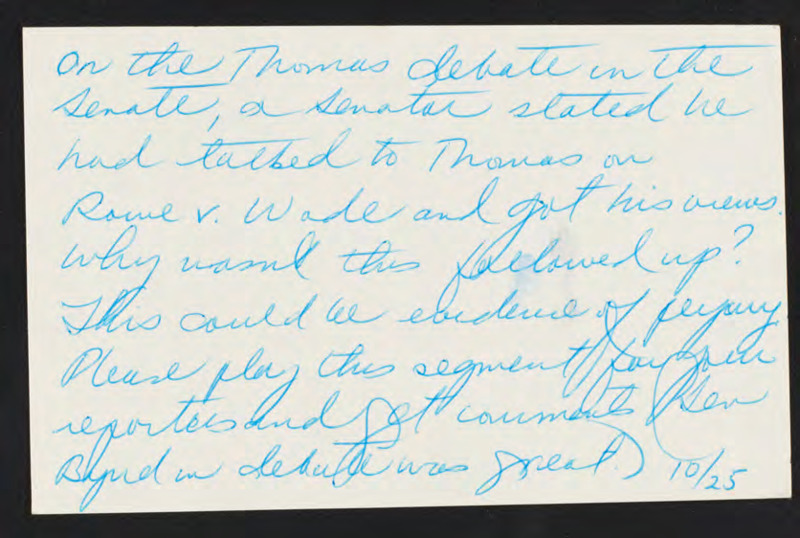 On the Thomas debate in the
Senate, a senator stated he
had talked to Thomas on
Rowe v. Wade and got his views.
Why wasn't this followed up?
This could be evidence of perjury.
Please play this segment for your
reporters and get comments (Sen
Byrd in debate was great.) 10/25